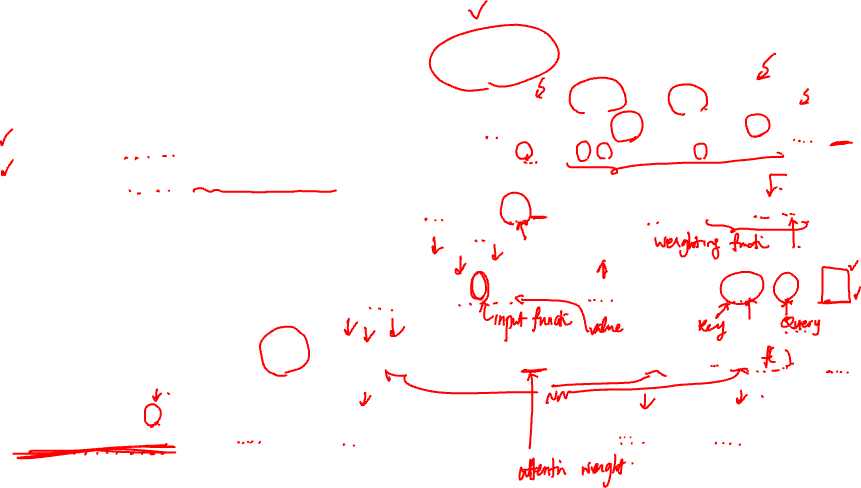 weighting functi
input functi
value
key
Query
f( )
NN
attentin weight